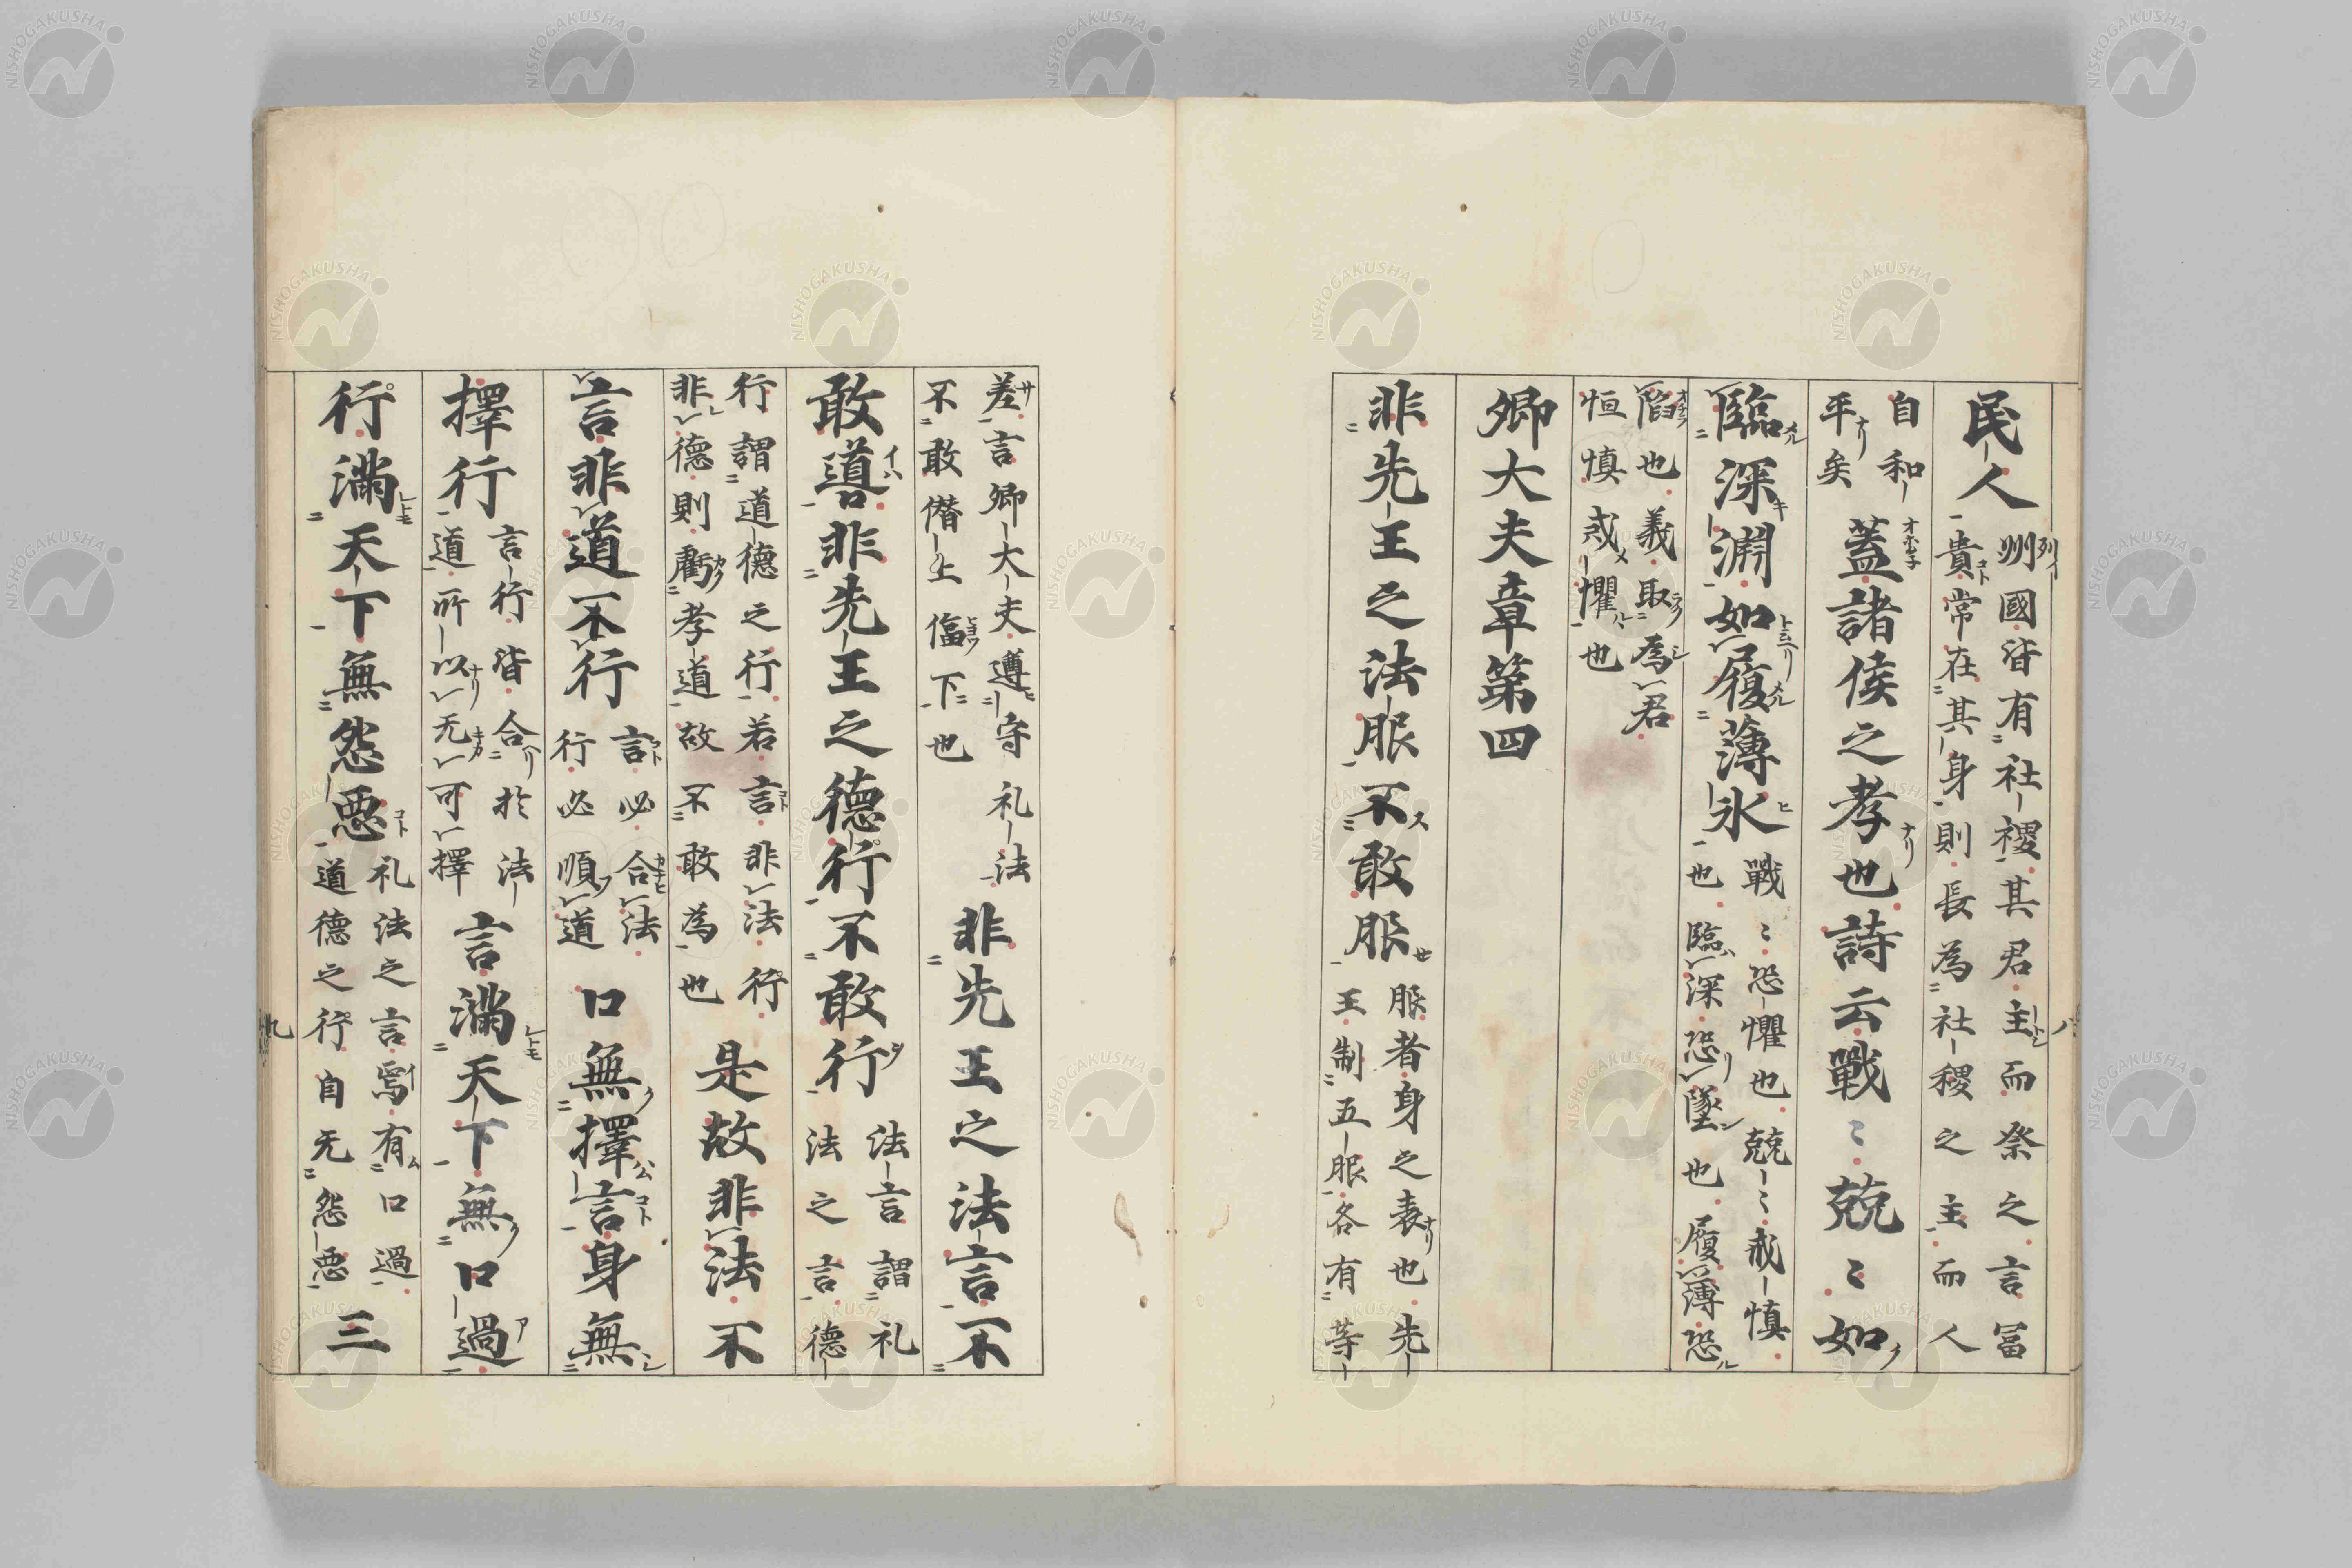 民人
列國皆有社稷其君主而祭之言冨
貴常在其身則長為社稷之主而人
自和
平矣
蓋諸侯之孝也詩云戰〻兢〻如
臨深淵如履薄冰
戰〻恐懼也兢〻戒慎
也臨深恐墜也履薄恐
陷也義取為君
恒慎戒懼也
卿大夫章第四
非先王之法服不敢服
服者身之表也先
王制五服各有等
差言卿大夫遵守礼法
不敢僣上偪下也
非先王之法言不
敢道非先王之德行不敢行
法言謂礼
法之言德
行謂道德之行若言非法行
非德則虧孝道故不敢為也
是故非法不
言非道不行
言必合法
行必順道
口無擇言身無
擇行
言行皆合於法
道所以无可擇
言滿天下無口過
行滿天下無怨惡
礼法之言焉有口過
道德之行自无怨惡
三
八
九
NISHOGAKUSHA